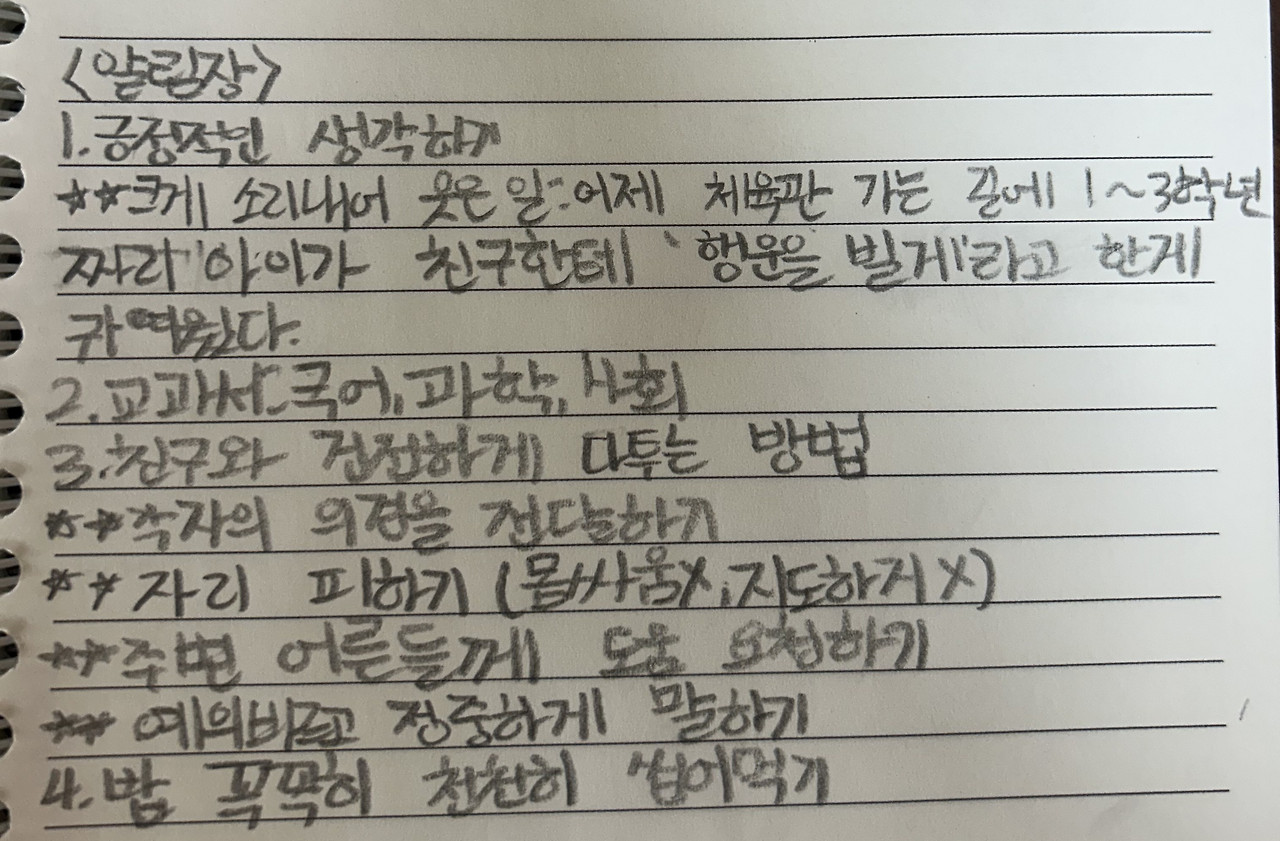 <알림장>
1.긍정적인 생각하기
**크게 소리내어 웃은 일:어제 체육관 가는 길에 1~3학년
짜리 아이가 친구한테 '행운을 빌게'라고 한게
귀여웠다.
2.교과서:국어,과학,사회
3.친구와 건전하게 다투는 방법
**각자의 의견을 전달하기
**자리 피하기 (몸싸움X, 하지X)
**주변 어른들께 도움 요청하기
**예의바르고 정중하게 말하기
4.밥 꼭꼭히 천천히 씹어먹기